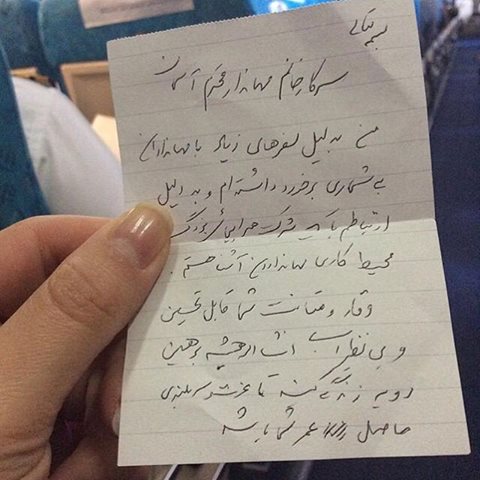 بسمه تعالی
سرکار خانم مهماندار محترم آسمان
من به دلیل سفرهای زیاد با مهمانداران
بی شماری برخورد داشته ام و به دلیل
ارتباطم با یک شرکت هواپیمائی بزرگ
محیط کاری مهمانداران آشنا هستم.
وقار و متانت شما قابل تحسین
و بی نظیر است انشاا... همیشه بر همین
رویه زندگی کنید تا عزت و سربلندی
حاصل عمر شما باشد